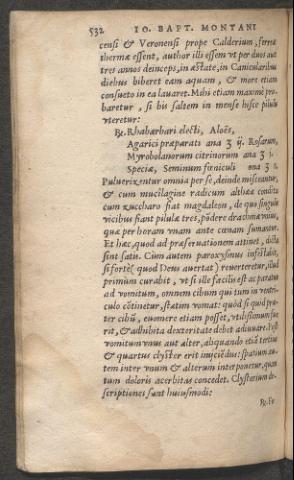 532 IO. BAPT. MONTANI
censi & Veronensi prope Calderium, ferreæ
thermæ essent, author illi essem vt per duos aut
tres annos deinceps, in æstate, in Canicularibus
diebus biberet eam aquam, & more etiam
consueto in ea lauaret. Mihi etiam maximè pro-
baretur, si bis saltem in mense hisce pilulis
vteretur:
℞. Rhabarbari electi, Aloës,
Agarici præparati ana ʒ ij. Rosarum,
Myrobolanorum citrinorum ana ʒ i.
Speciæ, Seminum fœniculi ana ʒ
Pulverizentur omnia per se, deinde misceantur,
& cum mucilagine radicum altheæ condita
cum zuccharo fiat magdaleon, de quo singulis
vicibus fiant pilulæ tres, põdere drachmæ vnius,
quæ per horam vnam ante cœnam sumantur.
Et hæc, quod ad præseruationem attinet, dicta
sint satis. Cùm autem paroxysmus infestabit,
si fortè (quod Deus auertat) reuerteretur, illud
primùm curabit, vt si ille facilis est ac paratus
ad vomitum, omnem cibum qui tum in ventri-
culo cõtinetur, statim vomat: quòd si quid præ-
ter cibũ, euomere etiam posset, vtilissimum fue
rit, & adhibita dexteritate debet adiuuare. Post
vomitum vnus aut alter, ab quando etiã tertius
& quartus clyster erit inijciẽdus: spatium au-
tem inter vnum & alterum interponetur, quan
tum doloris acerbitas concedet. Clysterium de-
scriptiones sunt huiusmodi: